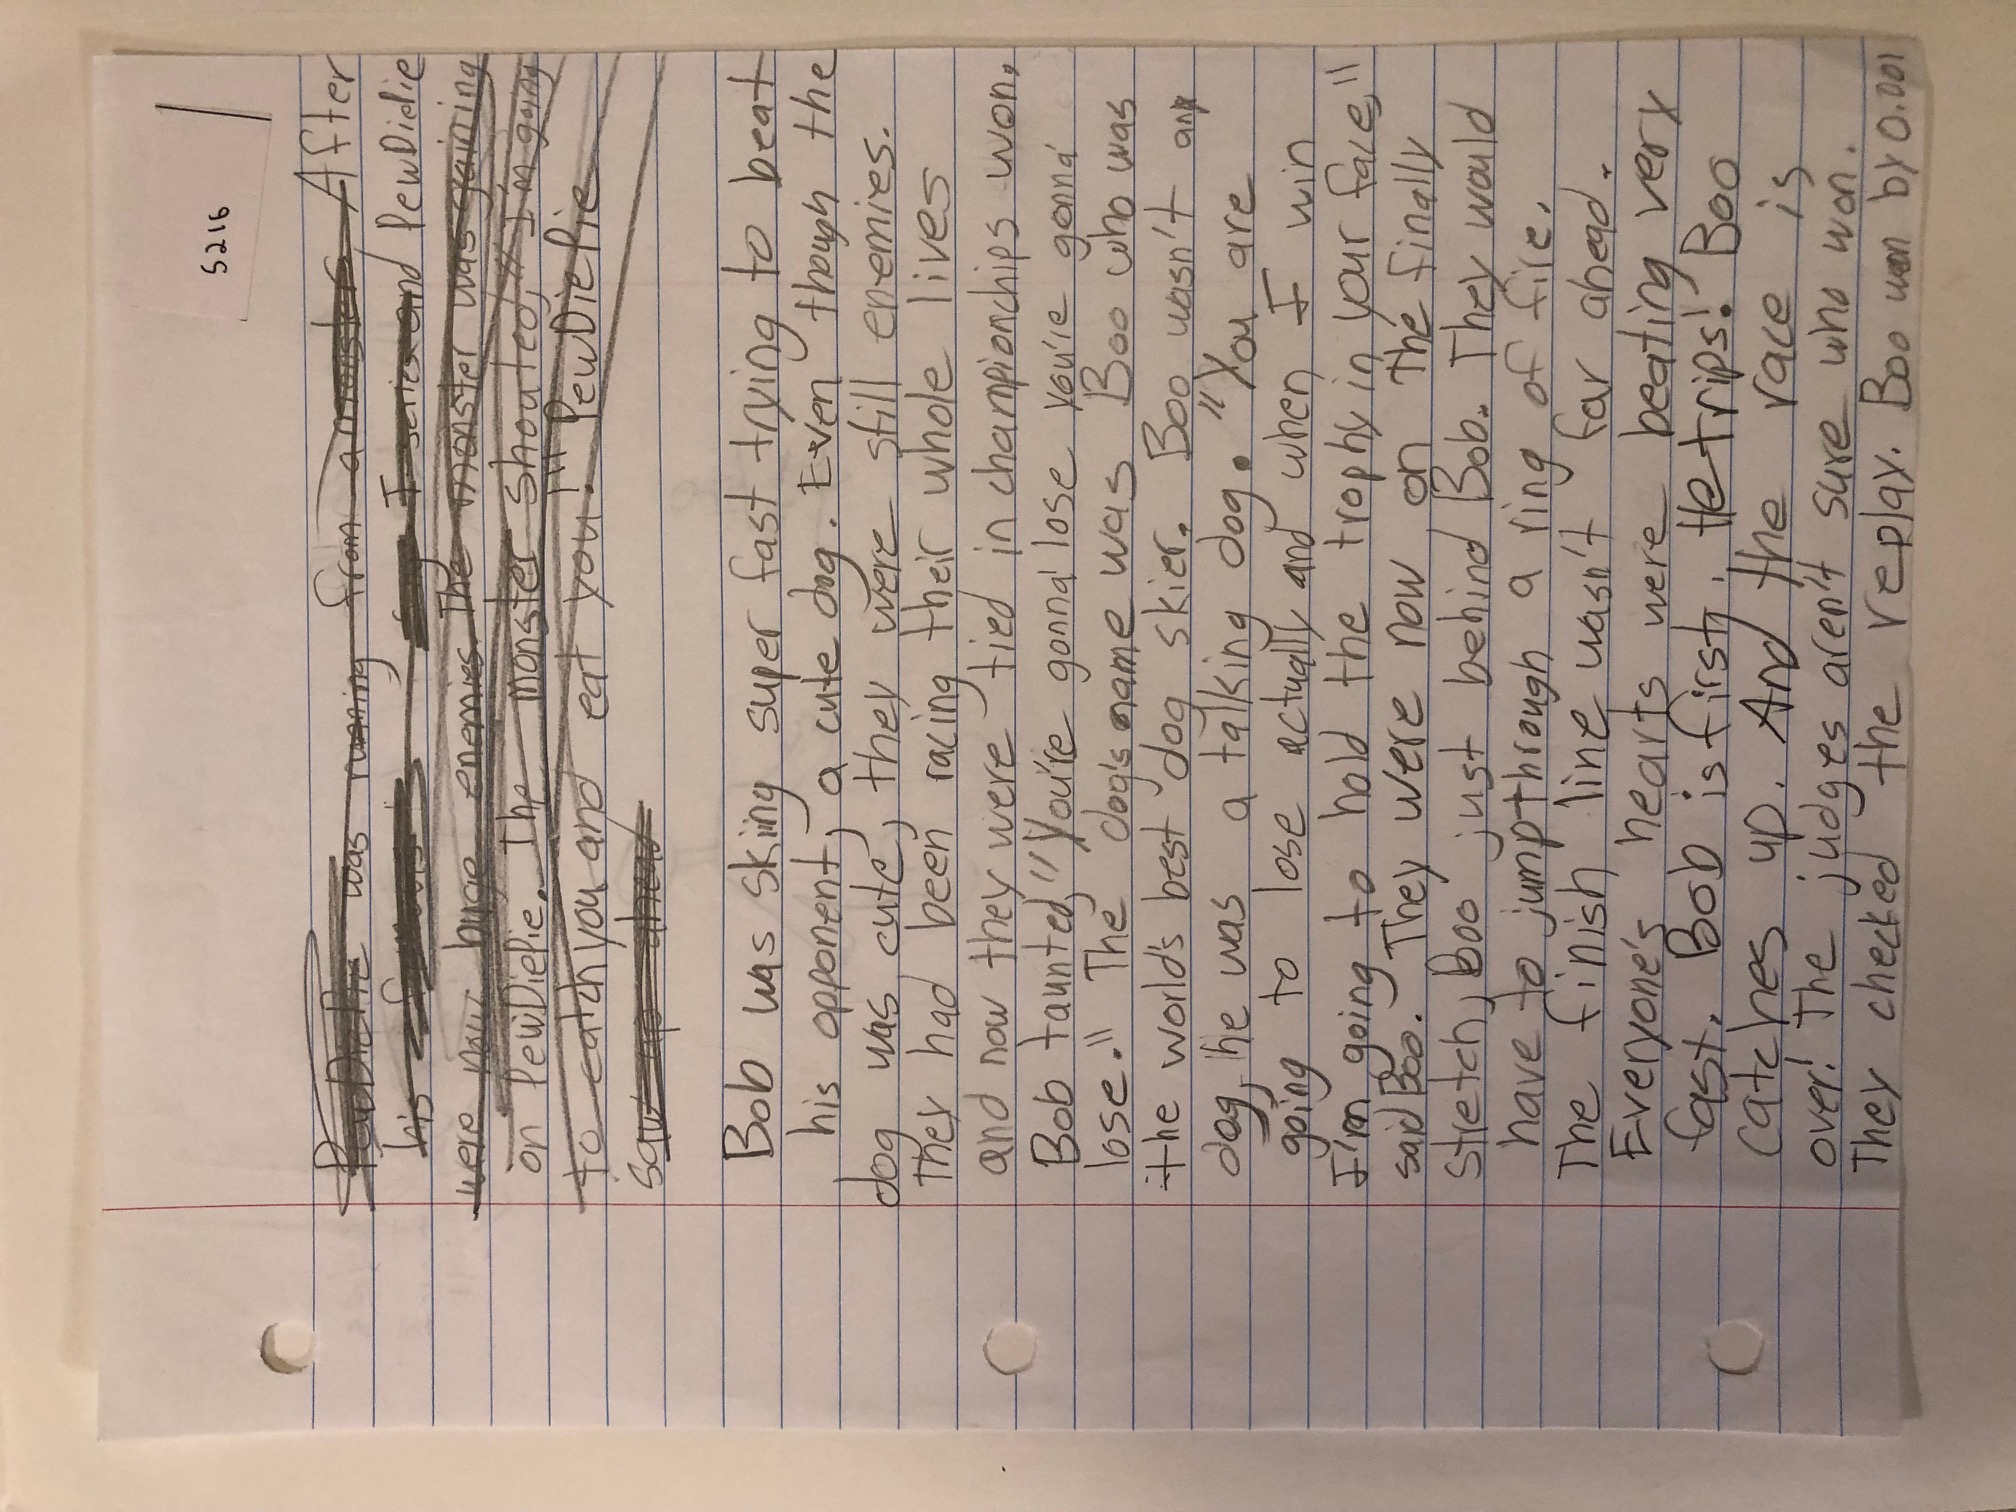 5216
PewDiePie was running from a monster. After
his famous T-series and PewDiePie
were now huge enemies. The monster was gaining
on PewDiePie. The monster shouted, "I'm going
to catch you and eat you!" PewDiePie
saw up ahead
Bob was skiing super fast trying to beat
his opponent, a cute dog. Even though the
dog was cute, they were still enemies.
They had been racing their whole lives
and now they were tied in championchips won.
Bob taunted, "You're gonna lose you're gonna
lose." The dog's name was Boo who was
the world's best dog skier. Boo wasn't any
dog, he was a talking dog. "You are
going to lose actually and when I win
I'm going to hold the trophy in your face,"
said Boo. They were now on the finally
stretch, Boo just behind Bob. They would
have to jump through a ring of fire.
The finish line wasn't far ahead.
Everyone's hearts were beating very
fast. Bob is first, He trips! Boo
catches up. And the race is
over! The judges aren't sure who won.
They checked the replay. Boo won by 0.001